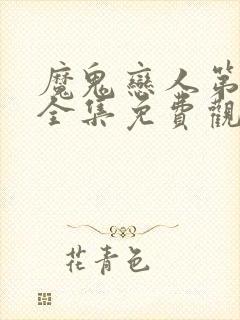 魔鬼戀人第
全集免費觀
花青色